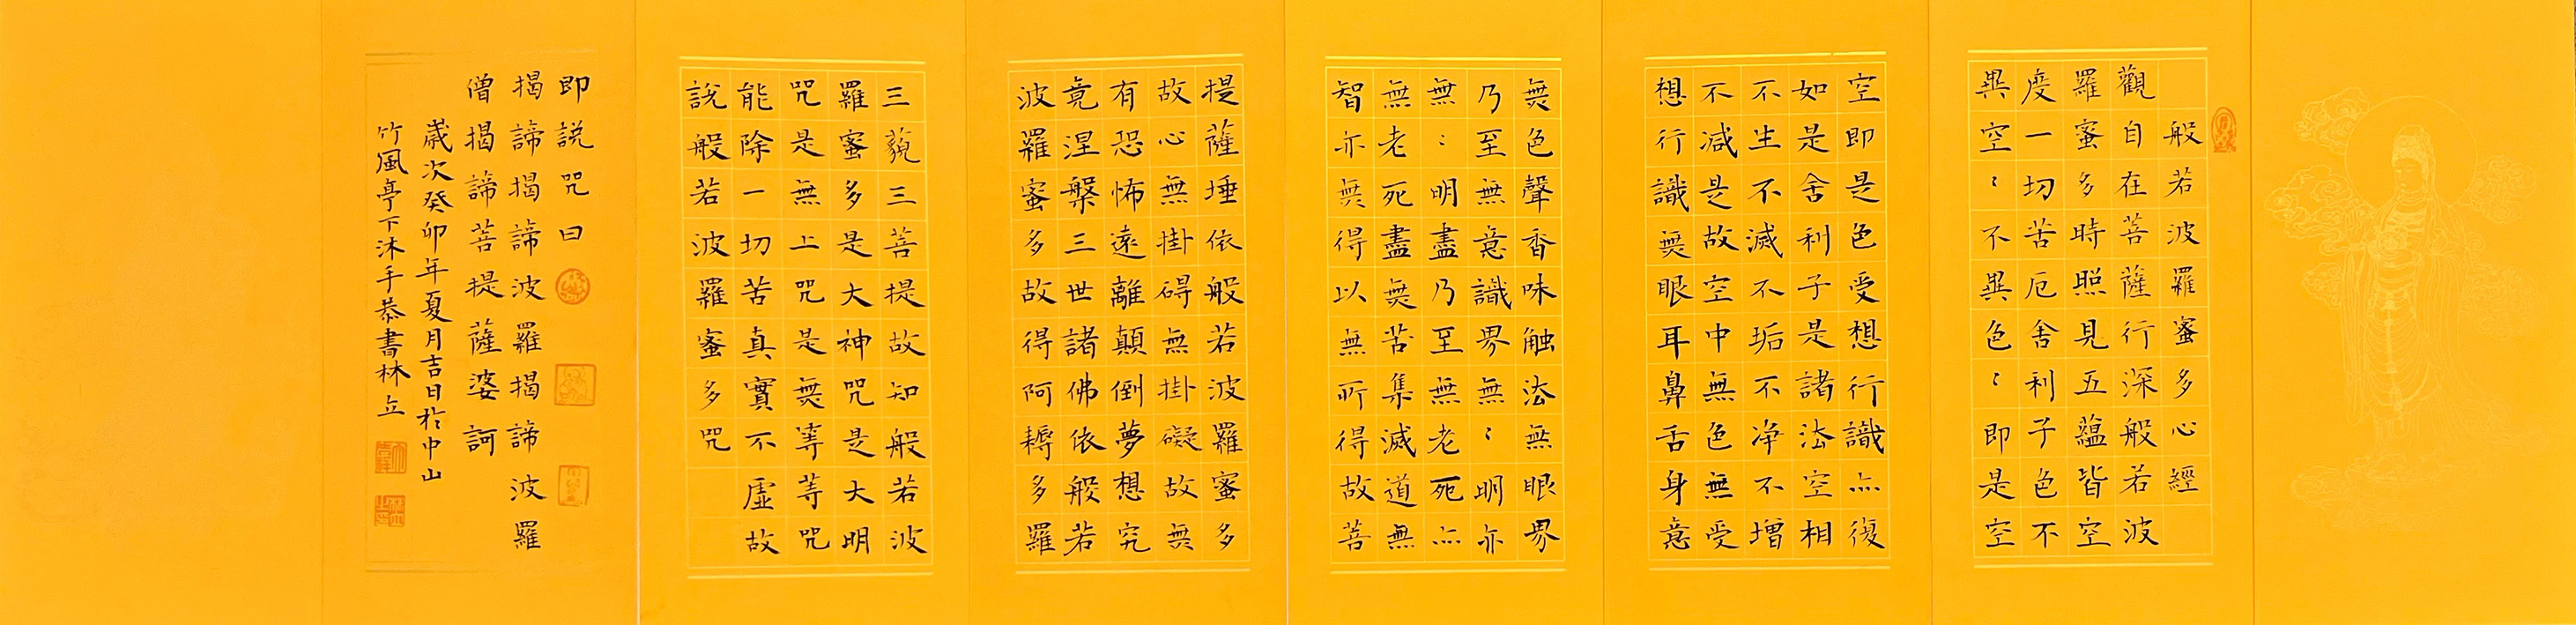 般若波羅蜜多心經
觀自在菩薩行深般若波
羅蜜多時照見五蘊皆空
度一切苦厄舍利子色不
異空〻不異色〻即是空
空即是色受想行識亦復
如是舍利子是諸法空相
不生不滅不垢不净不增
不减是故空中無色無受
想行識無眼耳鼻舌身意
無色聲香味触法無眼界
乃至無意識界無〻明亦
無〻明盡乃至無老死亦
無老死盡無苦集滅道無
智亦無得以無所得故菩
提薩埵依般若波羅蜜多
故心無掛碍無掛礙故無
有恐怖遠離顛倒夢想究
竟涅槃三世諸佛依般若
波羅蜜多故得阿耨多羅
三藐三菩提故知般若波
羅蜜多是大神咒是大明
咒是無上咒是無等等咒
能除一切苦真實不虛故
說般若波羅蜜多咒
即説咒曰
揭諦揭諦波羅揭諦波羅
僧揭諦菩提薩婆訶
歲次癸卯年夏月吉日於中山
竹風亭下沐手恭書林立